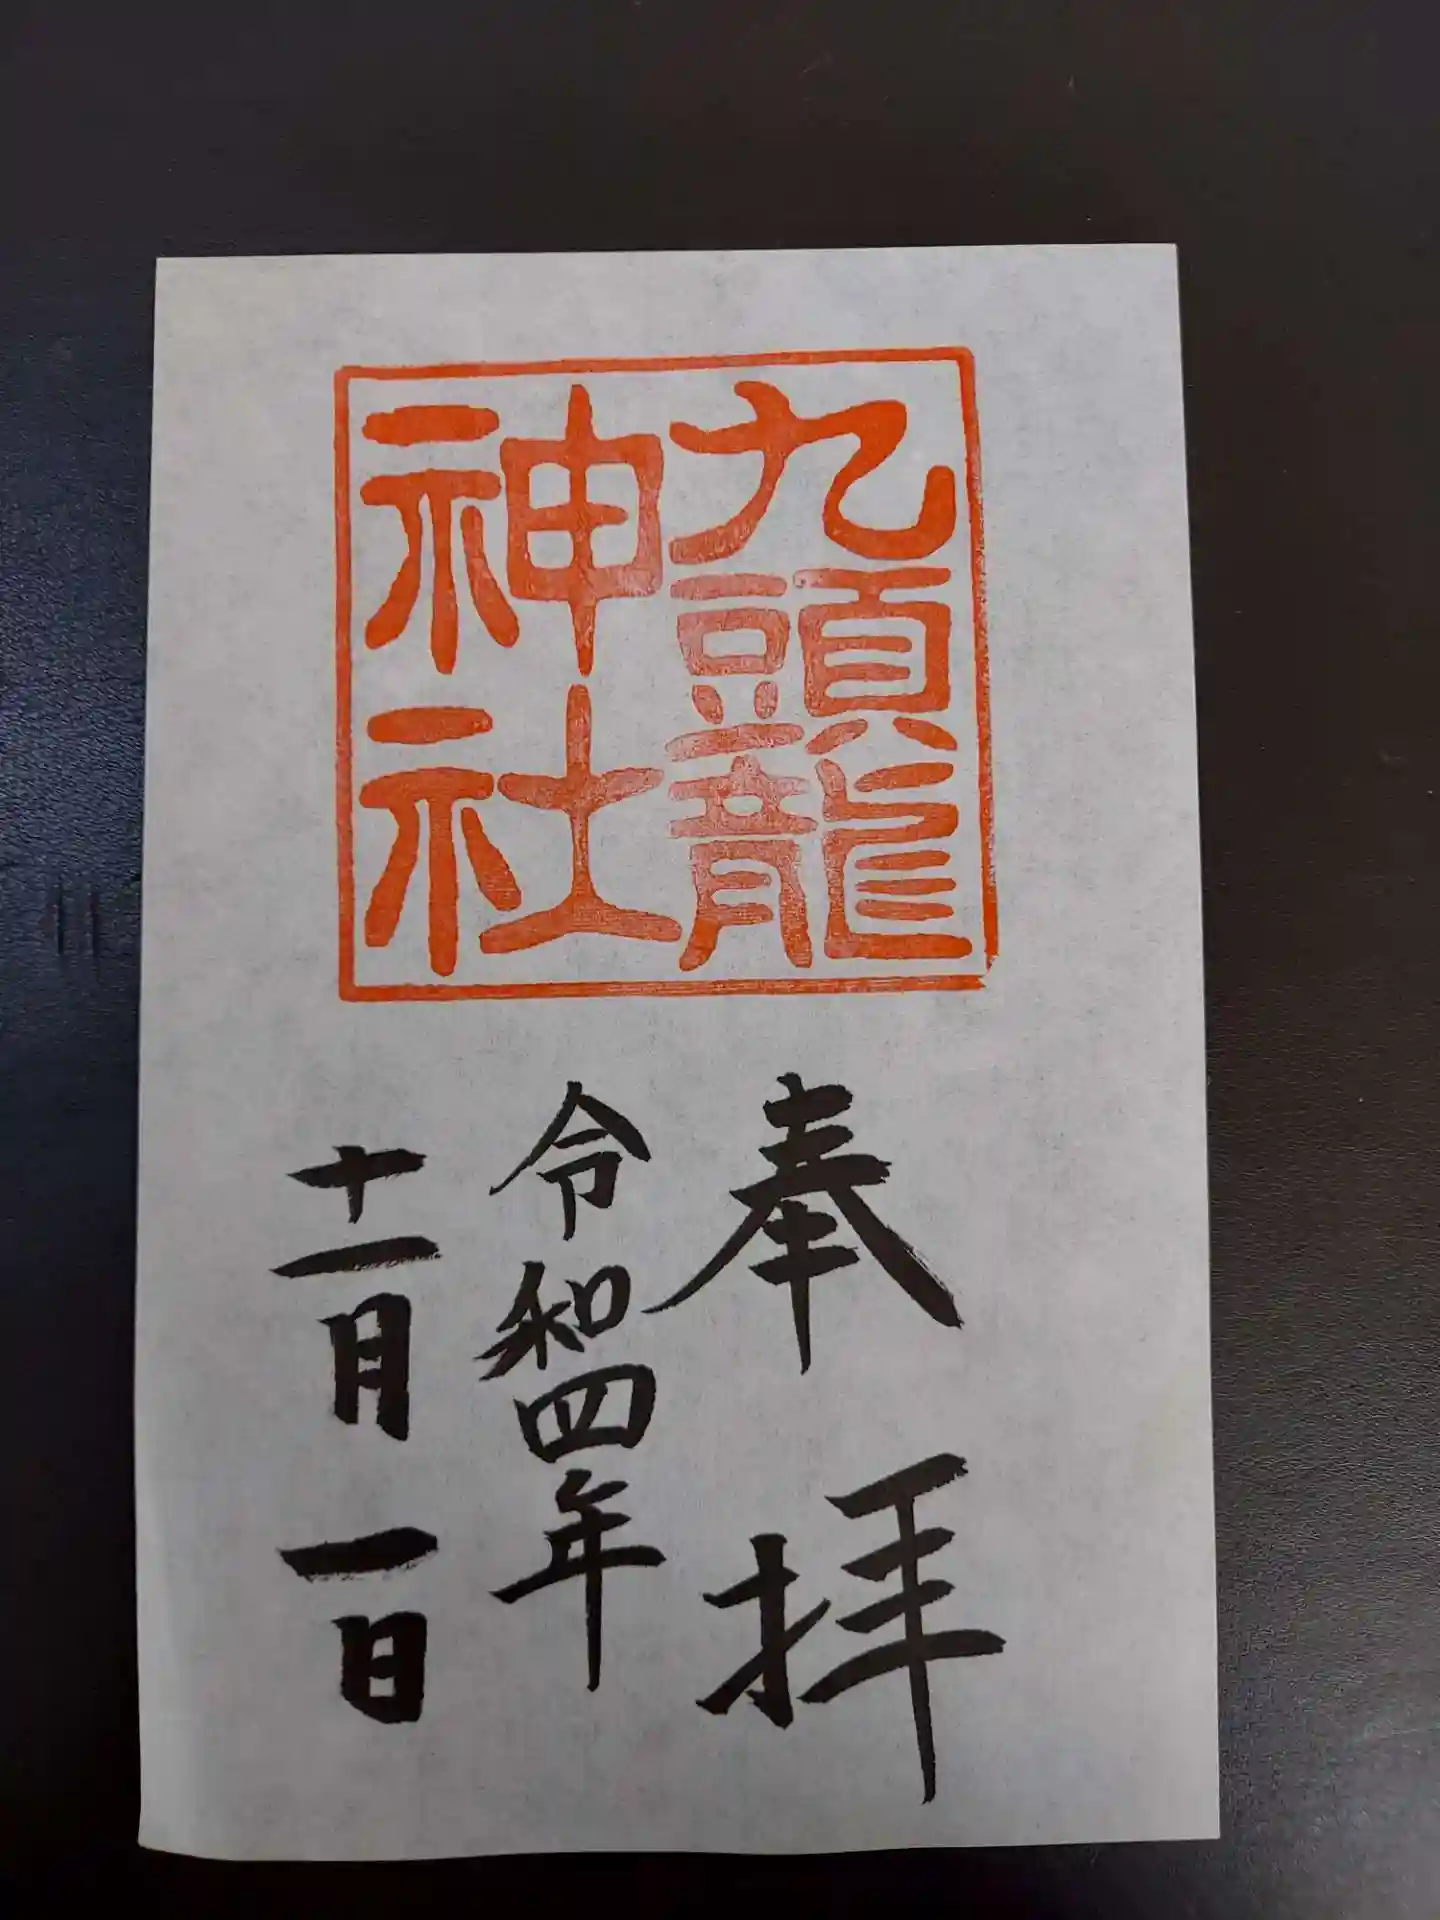 九頭龍
神社
奉拝
令和四年
十一月一日